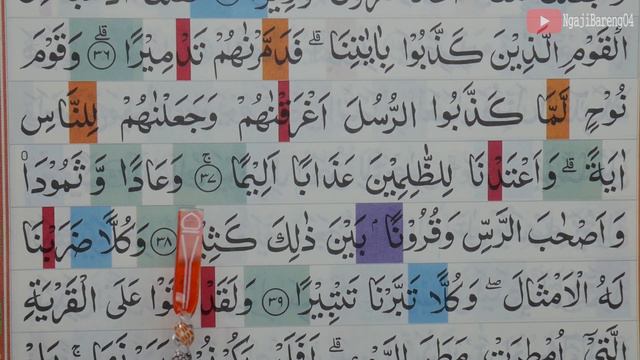 NgajiBareng04
الْقَوْمِ الَّذِيْنَ كَذَّبُوْا بِاٰيٰتِنَاۗ فَدَمَّرْنٰهُمْ تَدْمِيْرًاۗ ٣٦ وَقَوْمَ
نُوْحٍ لَّمَّا كَذَّبُوا الرُّسُلَ اَغْرَقْنٰهُمْ وَجَعَلْنٰهُمْ لِلنَّاسِ
اٰيَةًۗ وَاَعْتَدْنَا لِلظّٰلِمِيْنَ عَذَابًا اَلِيْمًاۚ ٣٧ وَعَادًا وَّثَمُوْدَا۟
وَاَصْحٰبَ الرَّسِّ وَقُرُوْنًاۢ بَيْنَ ذٰلِكَ ٣٨ وَكُلًّا ضَرَبْنَا
لَهُ الْاَمْثَالَۖ وَكُلًّا تَبَّرْنَا تَتْبِيْرًا ٣٩ وَلَقَدْ عَلَى الْقَرْيَةِ